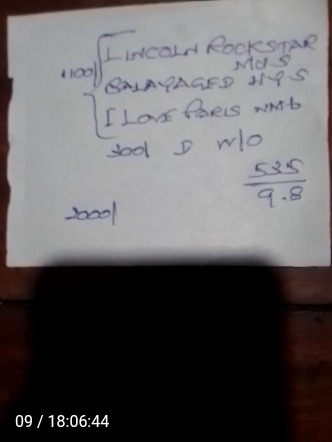 LINCOLN ROCKSTAR
MUS
1100/ BALAYAGED NYS
I LOVE PARIS NMB
300/ D W/O
535
9.8
2000/
09 / 18:06:44